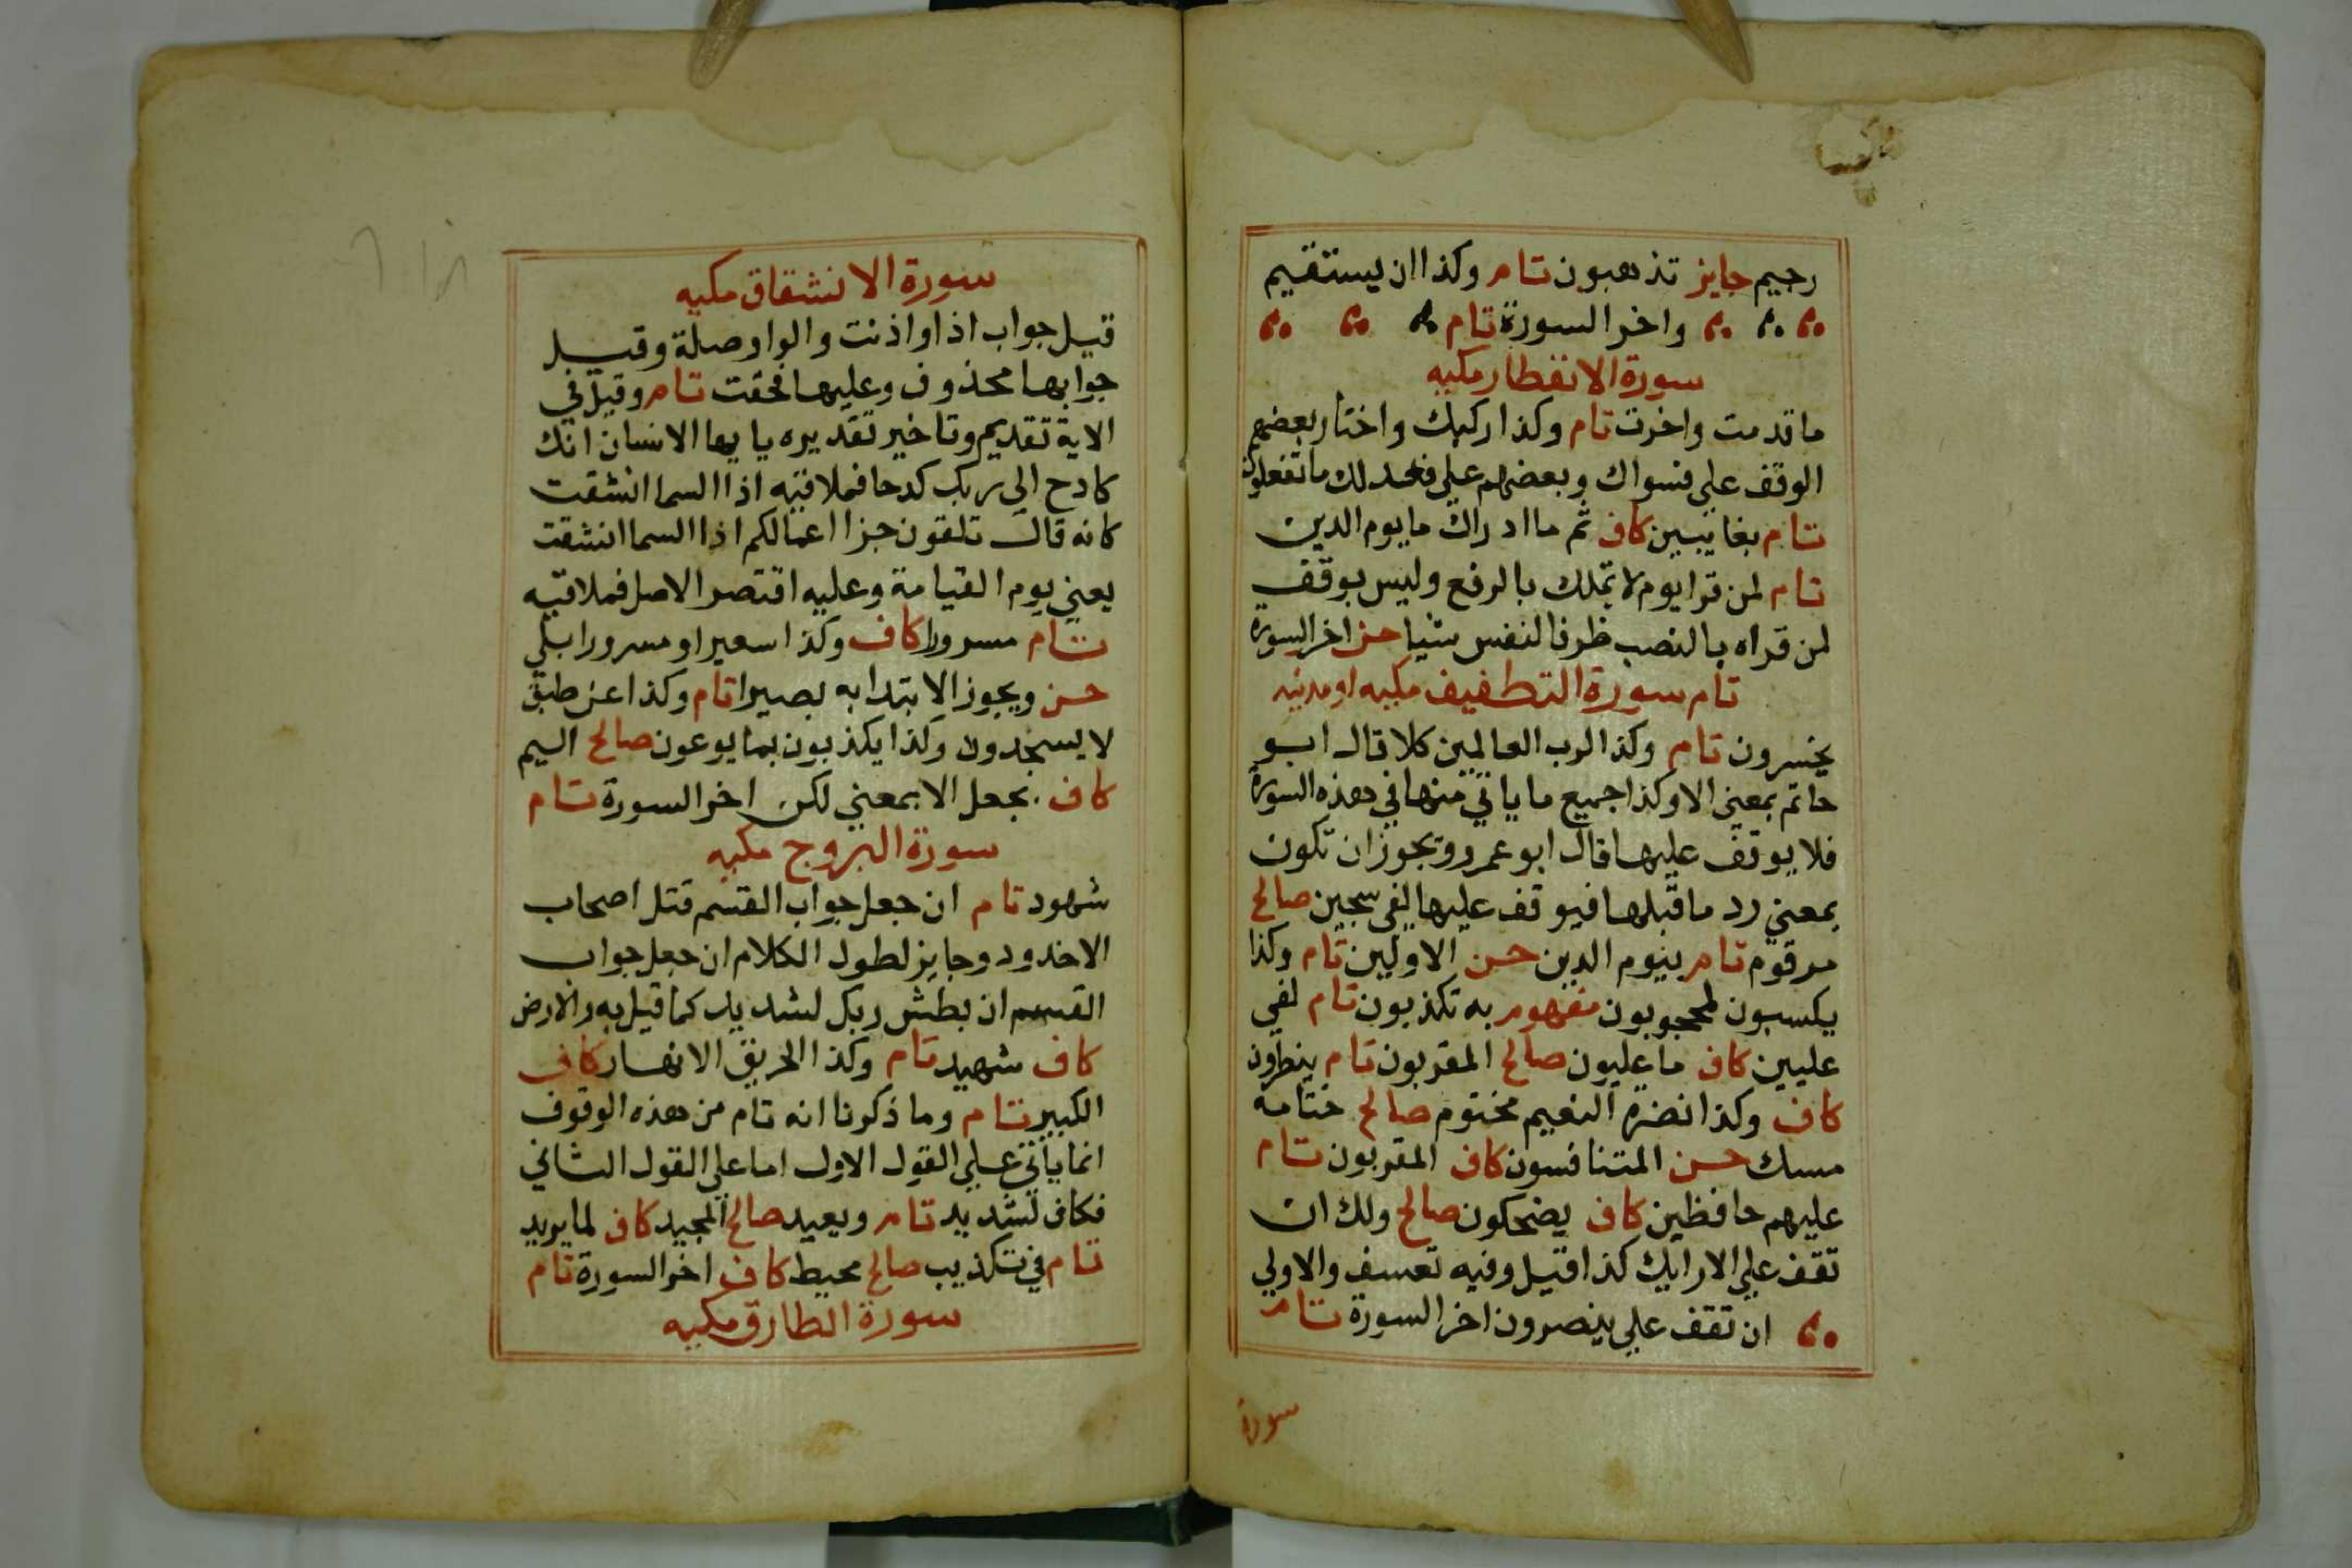 رجيم جايز تذهبون تام وكذا ان يستقيم
واخر السورة تام
سورة الانفطار مكيه
ما قدمت واخرت تام وكذا ركبك واختار بعضهم
الوقف على فسواك وبعضهم على فعدلك ما تفعلون
تام بغايبين كاف ثم ما ادراك ما يوم الدين
تام لمن قرا يوم لا تملك بالرفع وليس بوقف
لمن قراه بالنصب ظرفا لنفس شيا حسن اخر السورة
تام سورة التطفيف مكيه او مدنيه
يخسرون تام وكذا لرب العالمين كلا قال ابو
حاتم بمعني الا وكذا جميع ما ياتي منها في هذه السورة
فلا يوقف عليها قال ابو عمرو ويجوز ان تكون
بمعني رد ما قبلها فيوقف عليها لفي سجين صالح
مرقوم تام بيوم الدين حسن الاولين تام وكذا
يكسبون لمحجوبون مفهوم به تكذبون تام لفي
عليين كاف ما عليون صالح المقربون تام ينظرون
كاف وكذا نضرة النعيم مختوم صالح ختامه
مسك حسن المتنافسون كاف المقربون تام
عليهم حافظين كاف يضحكون صالح ولك ان
تقف علي الارايك كذا قيل وفيه تعسف والاولي
ان تقف علي ينصرون اخر السورة تام
سورة
سورة الانشقاق مكيه
قيل جواب اذا واذنت والواو صلة وقيل
جوابها محذوف وعليها فحقت تام وقيل في
الاية تقديم وتاخير تقديره يا يها الانسان انك
كادح الى ربك كدحا فملاقيه اذا السما انشقت
كانه قال تلقون جزا اعمالكم اذا السما انشقت
يعني يوم القيامة وعليه اقتصر الاصل فملاقيه
تام مسرورا كاف وكذا سعيرا و مسرورا بلي
حسن ويجوز الابتدا به بصيرا تام وكذا عن طبق
لا يسجدون وكذا يكذبون بما يوعون صالح اليم
كاف . بجعل الا بمعني لكن اخر السورة تام
سورة البروج مكيه
شهود تام ان جعل جواب القسم قتل اصحاب
الاخدود وجايز لطول الكلام ان جعل جواب
القسم ان بطش ربك لشديد كما قيل به والارض
كاف شهيد تام وكذا الحريق الانهار كاف
الكبير تام وما ذكرنا انه تام من هذه الوقوف
انما ياتي علي القول الاول اما علي القول الثاني
فكاف لشديد تام ويعيد صالح المجيد كاف لما يريد
تام في تكذيب صالح محيط كاف اخر السورة تام
سورة الطارق مكيه